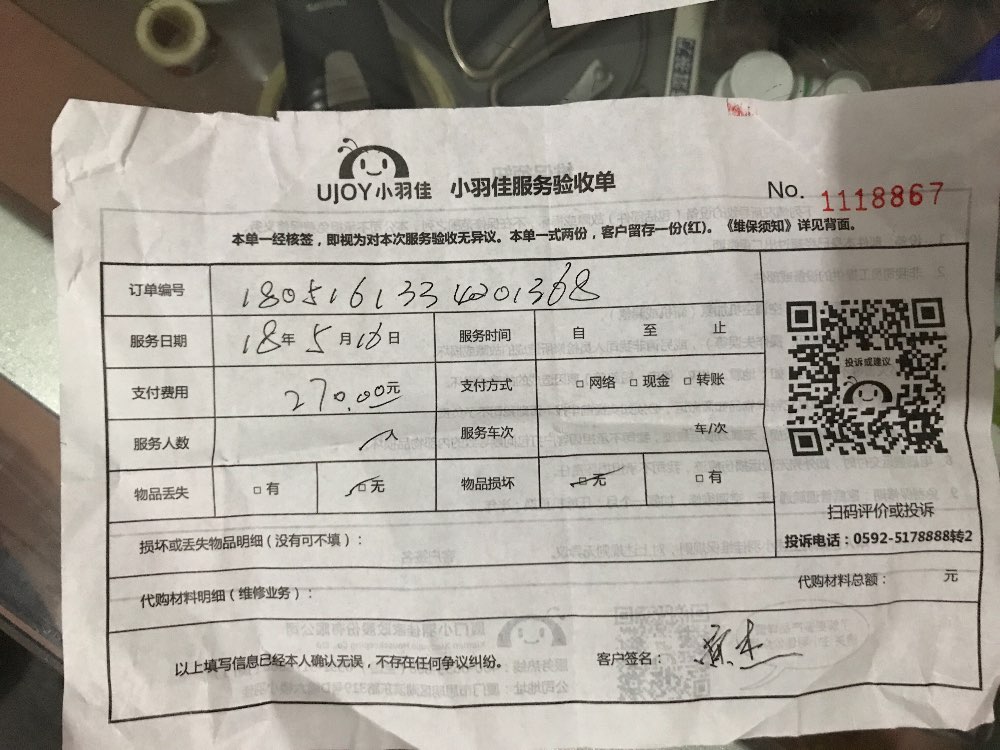 UJOY小羽佳 小羽佳服务验收单 No. 1118867
本单一经核签，即视为对本次服务验收无异议。本单一式两份，客户留存一份(红)。《维保须知》详见背面。
订单编号 1805161334201368
服务日期 18年 5月16日 服务时间 自 至 止
支付费用 270.00元 支付方式 □网络 □现金 □转账
服务人数 服务车次 车/次
物品丢失 □有 □无 物品损坏 □无 □有
投诉或建议
扫码评价或投诉
投诉电话：0592-5178888转2
损坏或丢失物品明细（没有可不填）：
代购材料明细（维修业务）： 代购材料总额： 元
以上填写信息已经本人确认无误，不存在任何争议纠纷。 客户签名：